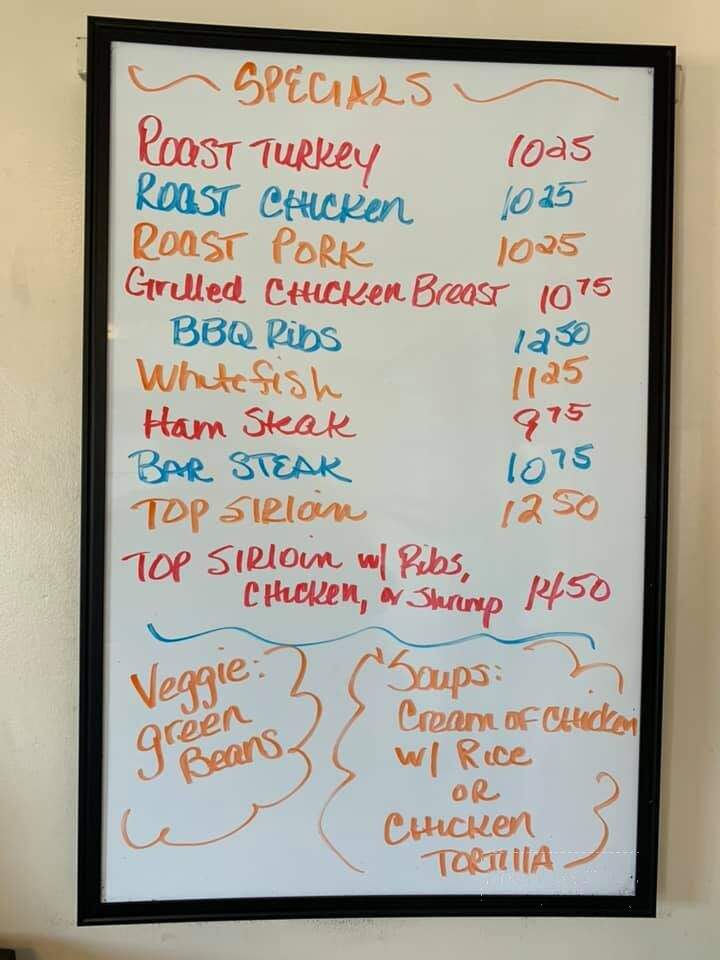 SPECIALS
ROAST TURKEY 1025
ROAST CHICKEN 1025
ROAST PORK 1025
Grilled CHICKEN Breast 1075
BBQ Ribs 1250
Whitefish 1125
Ham Steak 975
BAR STEAK 1075
TOP SIRloin 1250
TOP SIRloin w/ Ribs,
CHICKEN, or Shrimp 1450
Veggie:
green
Beans
Soups:
Cream of Chicken
w/ Rice
OR
CHICKEN
TORTIllA